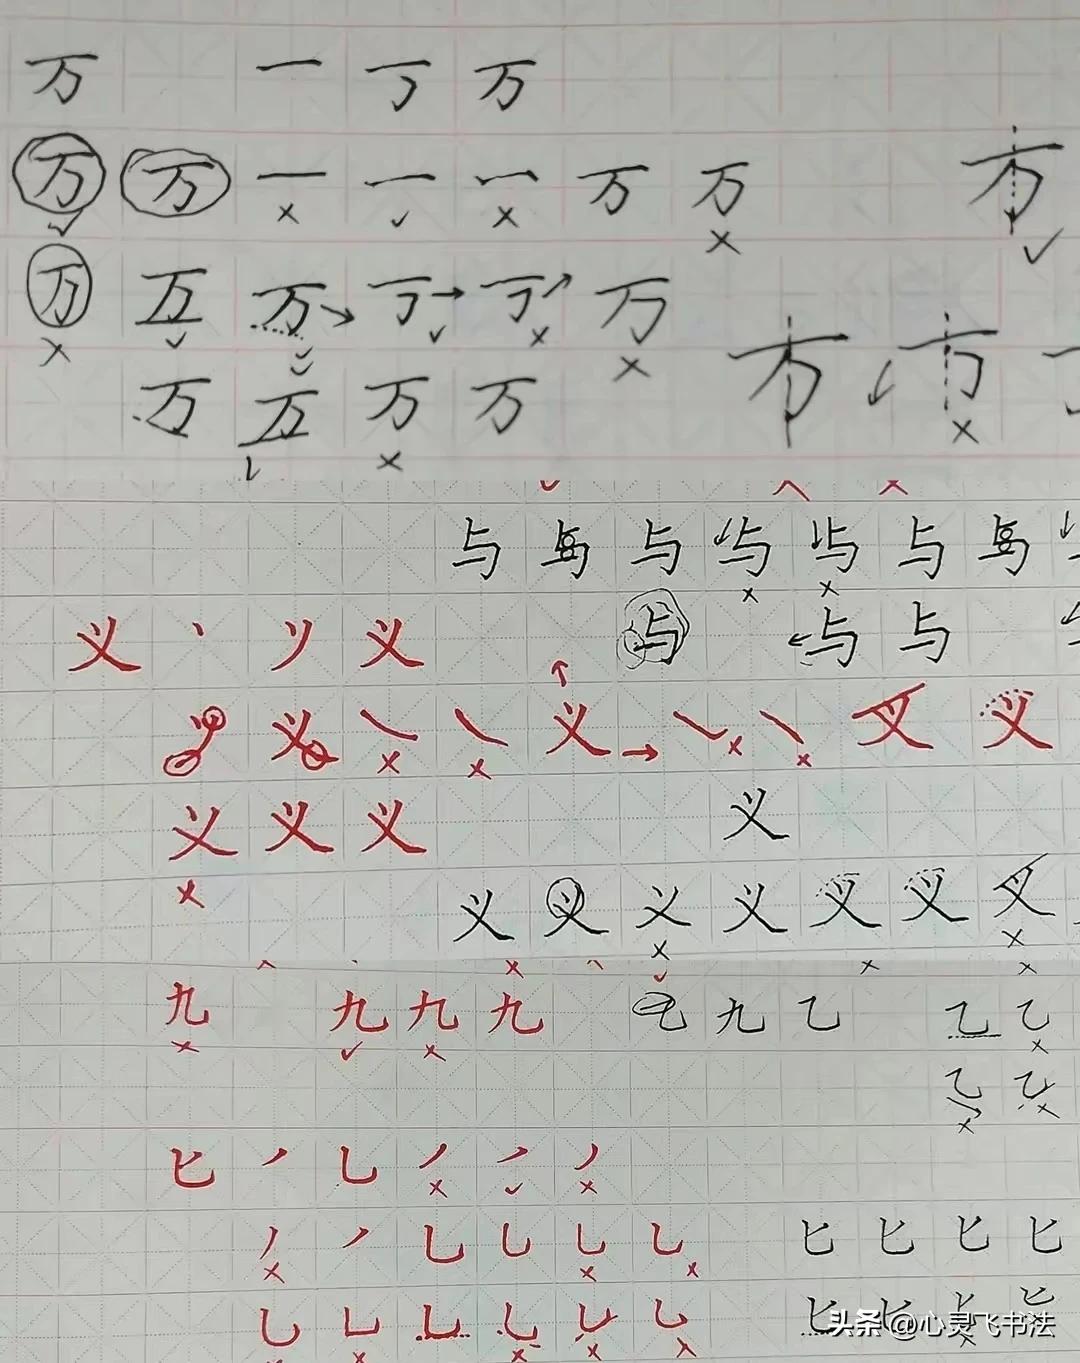 万 一 丁 万
万 万 一 一 一 万 万 万
万 万 万 丁 丁 万
万 万 万 万 万
与 与 与 与 与 与 与
义 丶 义 与 与 与
义 义 义 义
义 义 义 义
义 义 义 义 义 义 义
九 九 九 九 九 乙 乙 乙
乙 乙
匕 丿 乚 丿 丿 丿
丿 丿 乚 乚 乚 乚 匕 匕 匕 匕
乚 乚 乚 乚 乚 乚 匕 匕
头条 @心灵飞书法